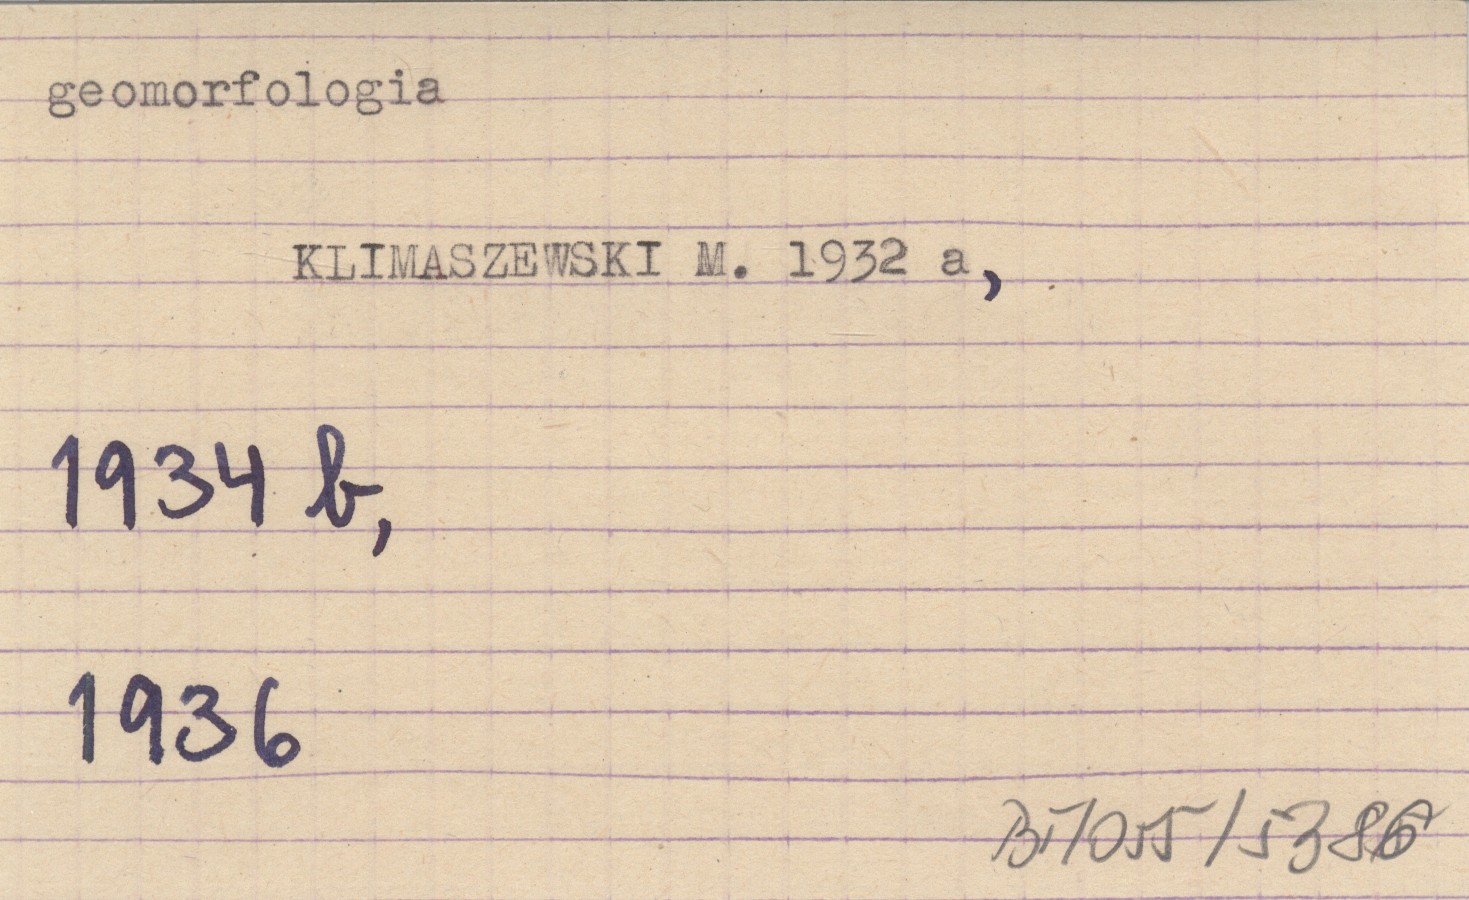 geomorfologia
KLIMASZEWSKI M. 1932 a,
1934 b,
1936